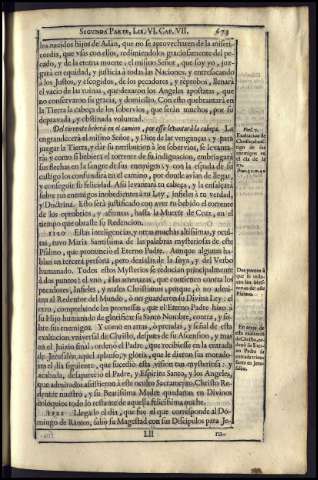 SEGUNDA PARTE, LIB. VI. CAP. VII. 673
los nacidos hijos de Adan, que no se aprovecharen de la miseri-
cordia, que vsas con ellos, redimiendolos graciosamente del pe-
cado, y de la eterna muerte; el mismo Señor, que soy yo, juz-
gará en equidad, y justicia à todas las Naciones, y entresacando
à los Justos, y escogidos, de los pecadores, y reprobos, llenarà
el vacio de las ruinas, que dexaron los Angeles apostatas, que
no conservaron su gracia, y domicilio. Con esto quebrantarà en
la Tierra la cabeça de los sobervios, que seràn muchos, por su
depravada, y obstinada voluntad.
Del torrente beverà en el camino, por esso levantarà la cabeça. La
engrandecerà el mismo Señor, y Dios de las venganças; y para
juzgar la Tierra, y dar su retribucion à los sobervios, se levanta-
rà y como si bebiera el torrente de su indignacion, embriagarà
sus flechas en la sangre de sus enemigos, y con la espada de su
castigo los confundirà en el camino, por donde avian de llegar,
y conseguir su felicidad. Assi levantarà tu cabeça, y la ensalçarà
sobre tus enemigos inobedientes à tu Ley, infieles à tu verdad,
y Doctrina. Esto serà justificado con aver tu bebido el torrente
de los oprobrios, y afrentas, hasta la Muerte de Cruz, en el
tiempo que obraste su Redencion.
1120 Estas inteligencias, y otras muchas altissimas, y ocul-
tas, tuvo Maria Santissima de las palabras mysteriosas de este
Psalmo, que pronunciò el Eterno Padre. Aunque algunas ha-
blan en tercera persona, pero dezialas de la suya, y del Verbo
humanado. Todos estos Mysterios se reducian principalmente
à dos puntos: el vno, à las amenazas, que contienen contra los
pecadores, Infieles, y malos Christianos; porque, ò no admi-
ten al Redentor del Mundo, ò no guardaron su Divina Ley: el
otro, comprehende las promessas, que el Eterno Padre hizo à
su Hijo humanado de glorificar su Santo Nombre, contra, y so-
bre sus enemigos. Y como en arras, ò prendas, y señal de esta
exaltacion vniversal de Christo, despues de su Ascension, y mas
en el Juizio final, ordenò el Padre, que recibiesse en la entrada
de Jerusalen aquel aplauso, y gloria, que le dieron sus morado-
res el dia siguiente, que sucediò esta vision tan mysteriosa: y
acabada, desapareciò el Padre, y Espiritu Santo, y los Angeles,
que admirados assistieron à este oculto Sacramento. Christo Re-
dentor nuestro, y su Beatissima Madre quedaron en Divinos
coloquios todo lo restante de aquella felicissima noche.
1121 Llegado el dia, que fue el que corresponde al Do-
mingo de Ramos, saliò su Magestad con sus Discipulos para Je-
Lll